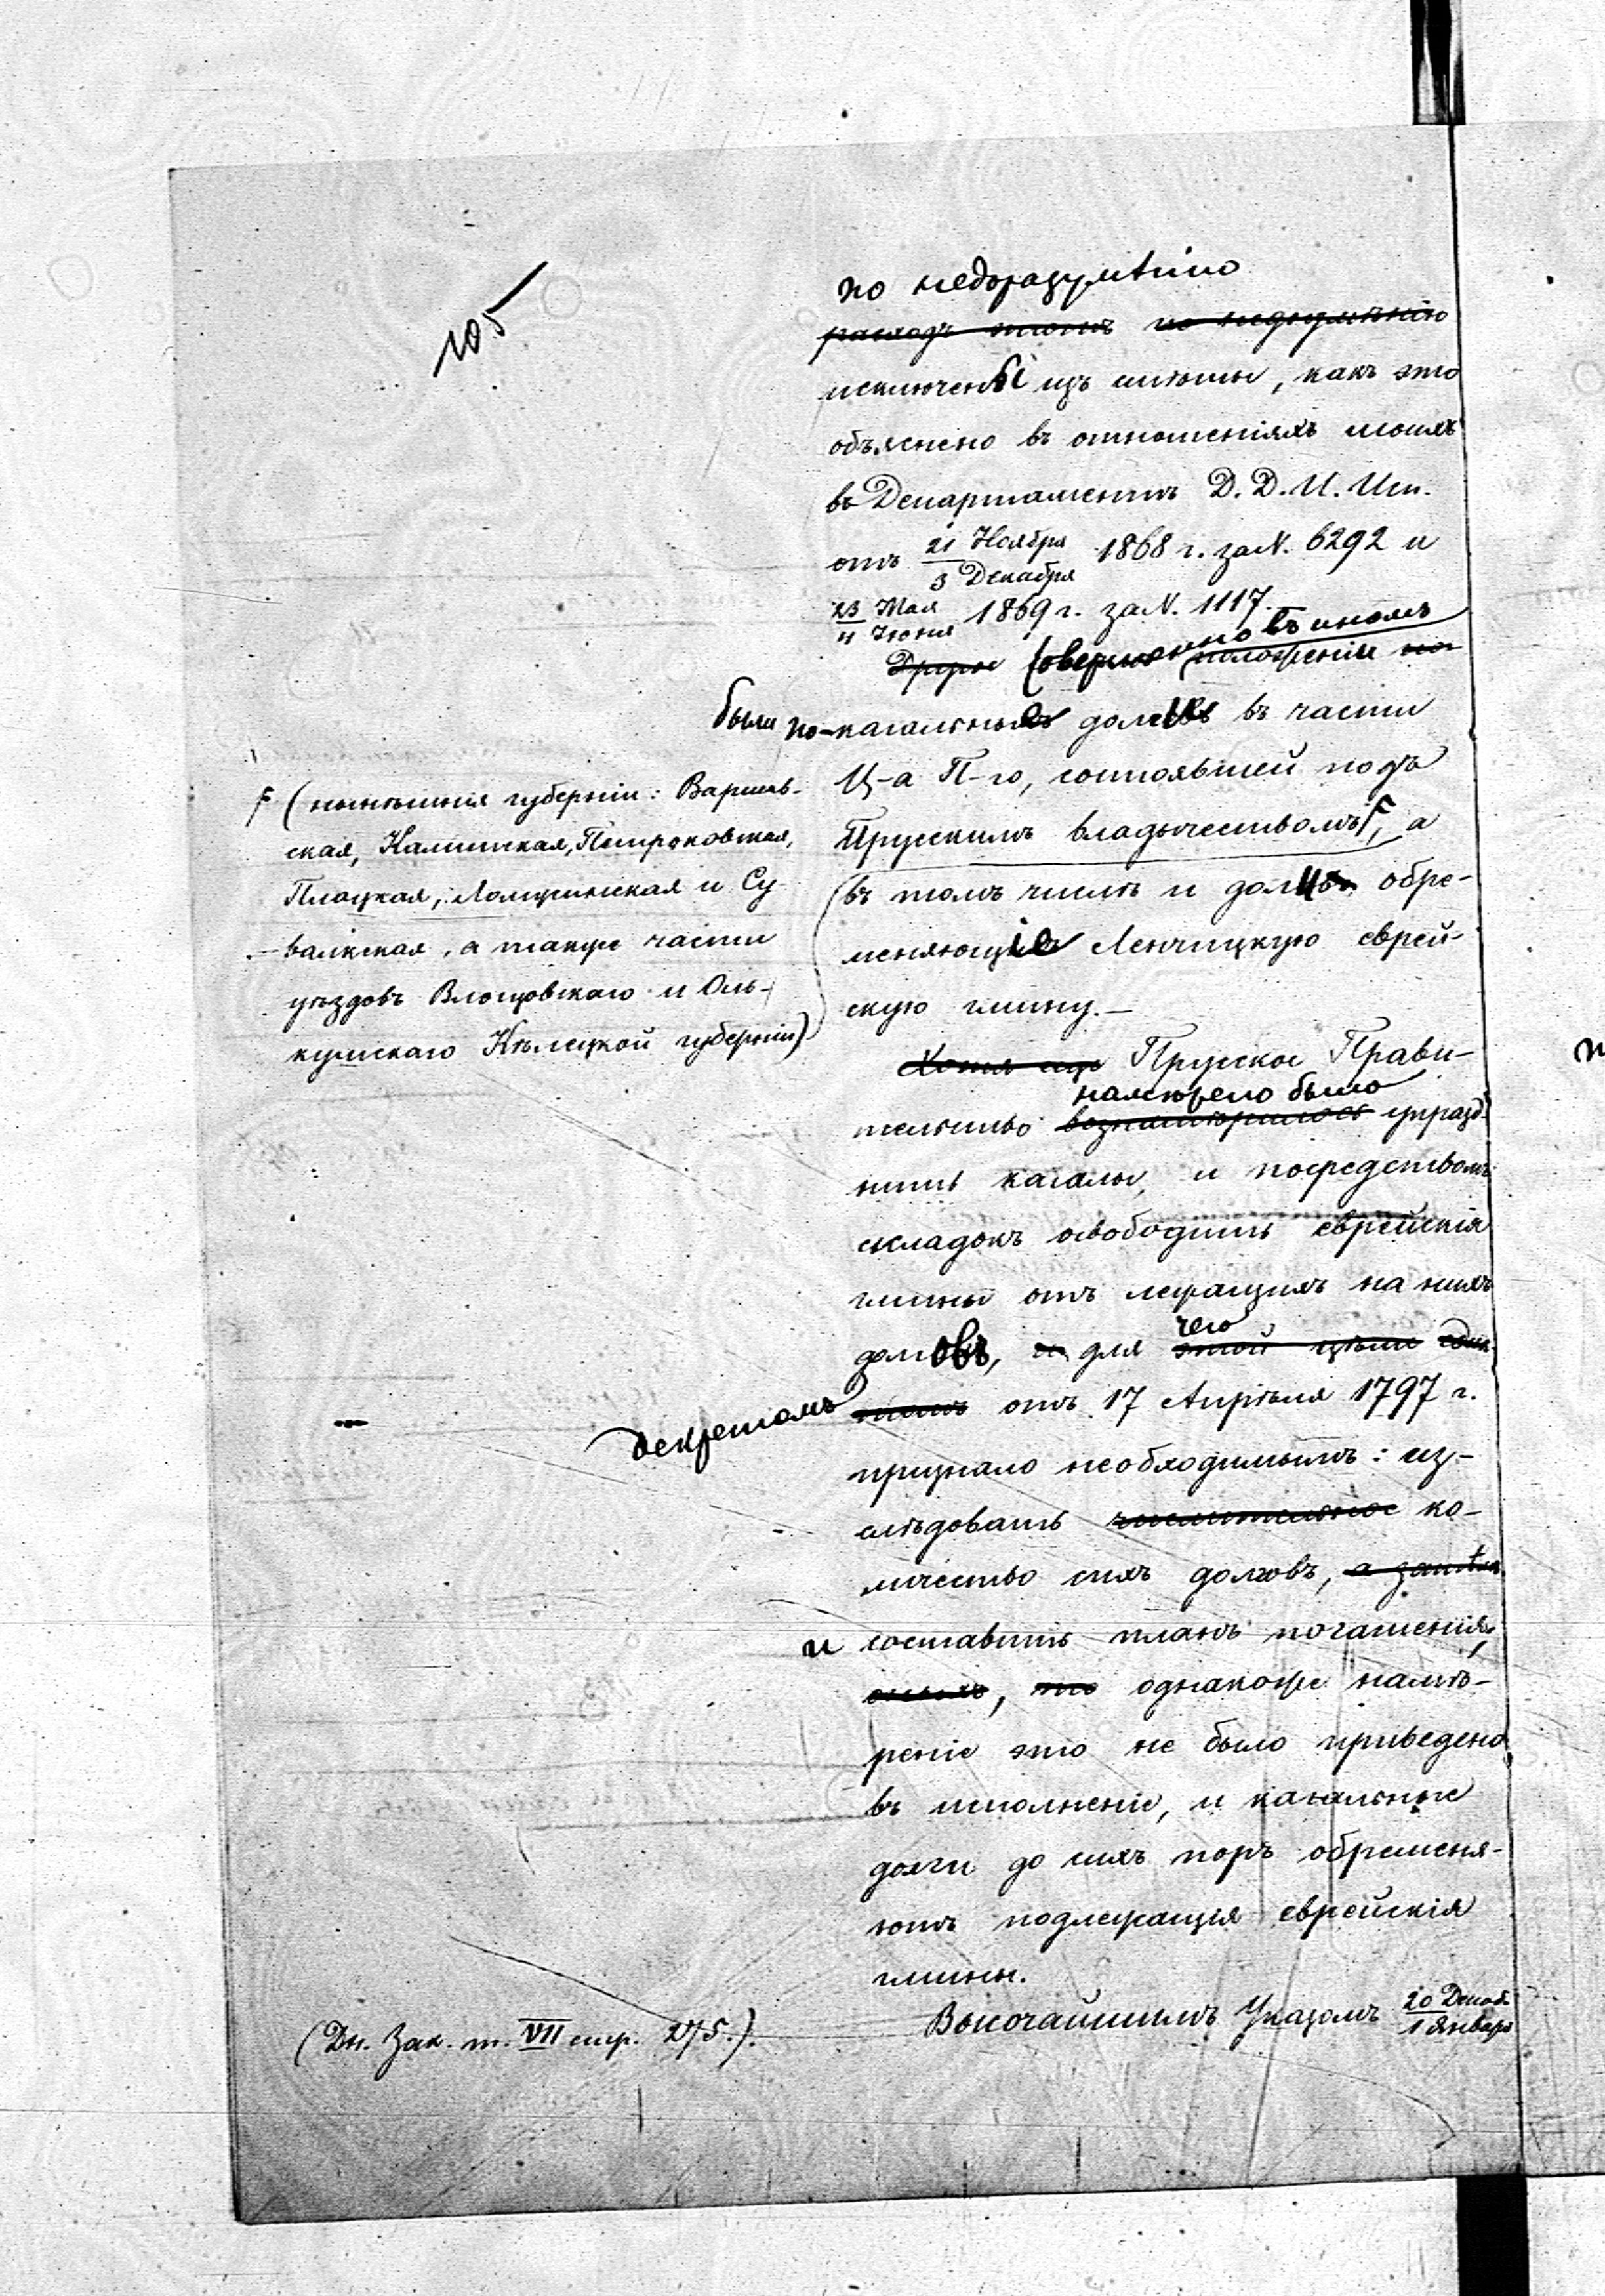 105
по недоразумѣнію
расходъ этотъ по недоумѣнію
исключены изъ смѣты, какъ это
объяснено въ отношеніяхъ моихъ
въ Департаментъ Д. Д. И. Исп.
отъ 21 Ноября / 3 Декабря 1868 г. за N. 6292 и
23 Мая / 4 Іюня 1869 г. за N. 1117.
совершенно въ иномъ
положеніи
были по-кагальные долги въ части
Ц-а П-го, состоявшей подъ
Прусскимъ владычествомъ, а
въ томъ числѣ и долги обре-
меняющіе Ленчицкую еврей-
скую гмину.—
(нынѣшнія губерніи: Варшав-
ская, Калишская, Петроковская,
Плоцкая, Ломжинская и Су-
валкская, а также части
уѣздовъ Влощовскаго и Оль-
кушскаго Кѣлецкой губерніи)
Хотя еще Прусское Прави-
намѣрено было
тельство вознамѣрилось упразд-
нить кагалы, и посредствомъ
складокъ освободить еврейскія
гмины отъ лежащихъ на нихъ
чего
долговъ, и для этой цѣли
декретомъ отъ 17 Апрѣля 1797 г.
признало необходимымъ: из-
слѣдовать числительное ко-
личество сихъ долговъ, а затѣмъ
и составить планъ погашенія,
оныхъ, но однакоже намѣ-
реніе это не было приведено
въ исполненіе, и кагальные
долги до сихъ поръ обременя-
ютъ подлежащія еврейскія
гмины.
Высочайшимъ Указомъ 20 Декаб. / 1 Января
(Дн. Зак. т. VII стр. 275.).